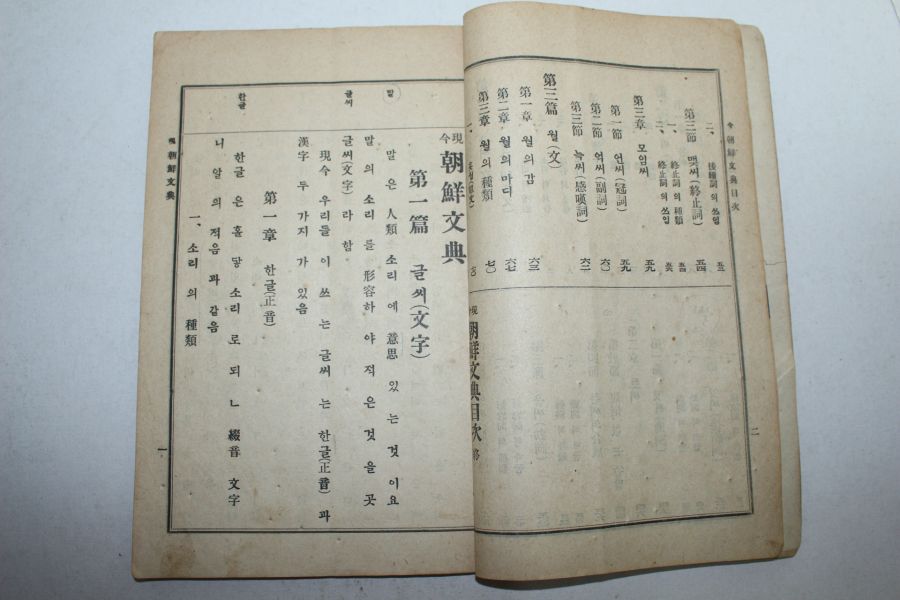 今 朝鮮文典目次
二、接續詞의 쓰임 五三
第三節 맺씨(終止詞) 五四
一、終止詞의 種類 五五
二、終止詞의 쓰임 五六
第三章 모임씨 五九
第一節 언씨(冠詞) 五九
第二節 억씨(副詞) 六〇
第三節 늑씨(感嘆詞) 六二
第三篇 월(文)
第一章 월의 감 六三
第二章 월의 마디 六七
第三章 월의 種類 七〇
現今 朝鮮文典目次 終
二
現今 朝鮮文典
第一篇 글씨(文字)
말
말은 人類 소리에 意思 있는 것이요
말의 소리를 形容하야 적은 것을 곳
글씨
글씨(文字)라 함
現今 우리들이 쓰는 글씨는 한글(正音)과
漢字 두 가지가 있음
第一章 한글(正音)
한글
한글은 홀 닿소리로 되ㄴ 綴音 文字
니 알의 적음과 같음
一、소리의 種類
現 朝鮮文典
一